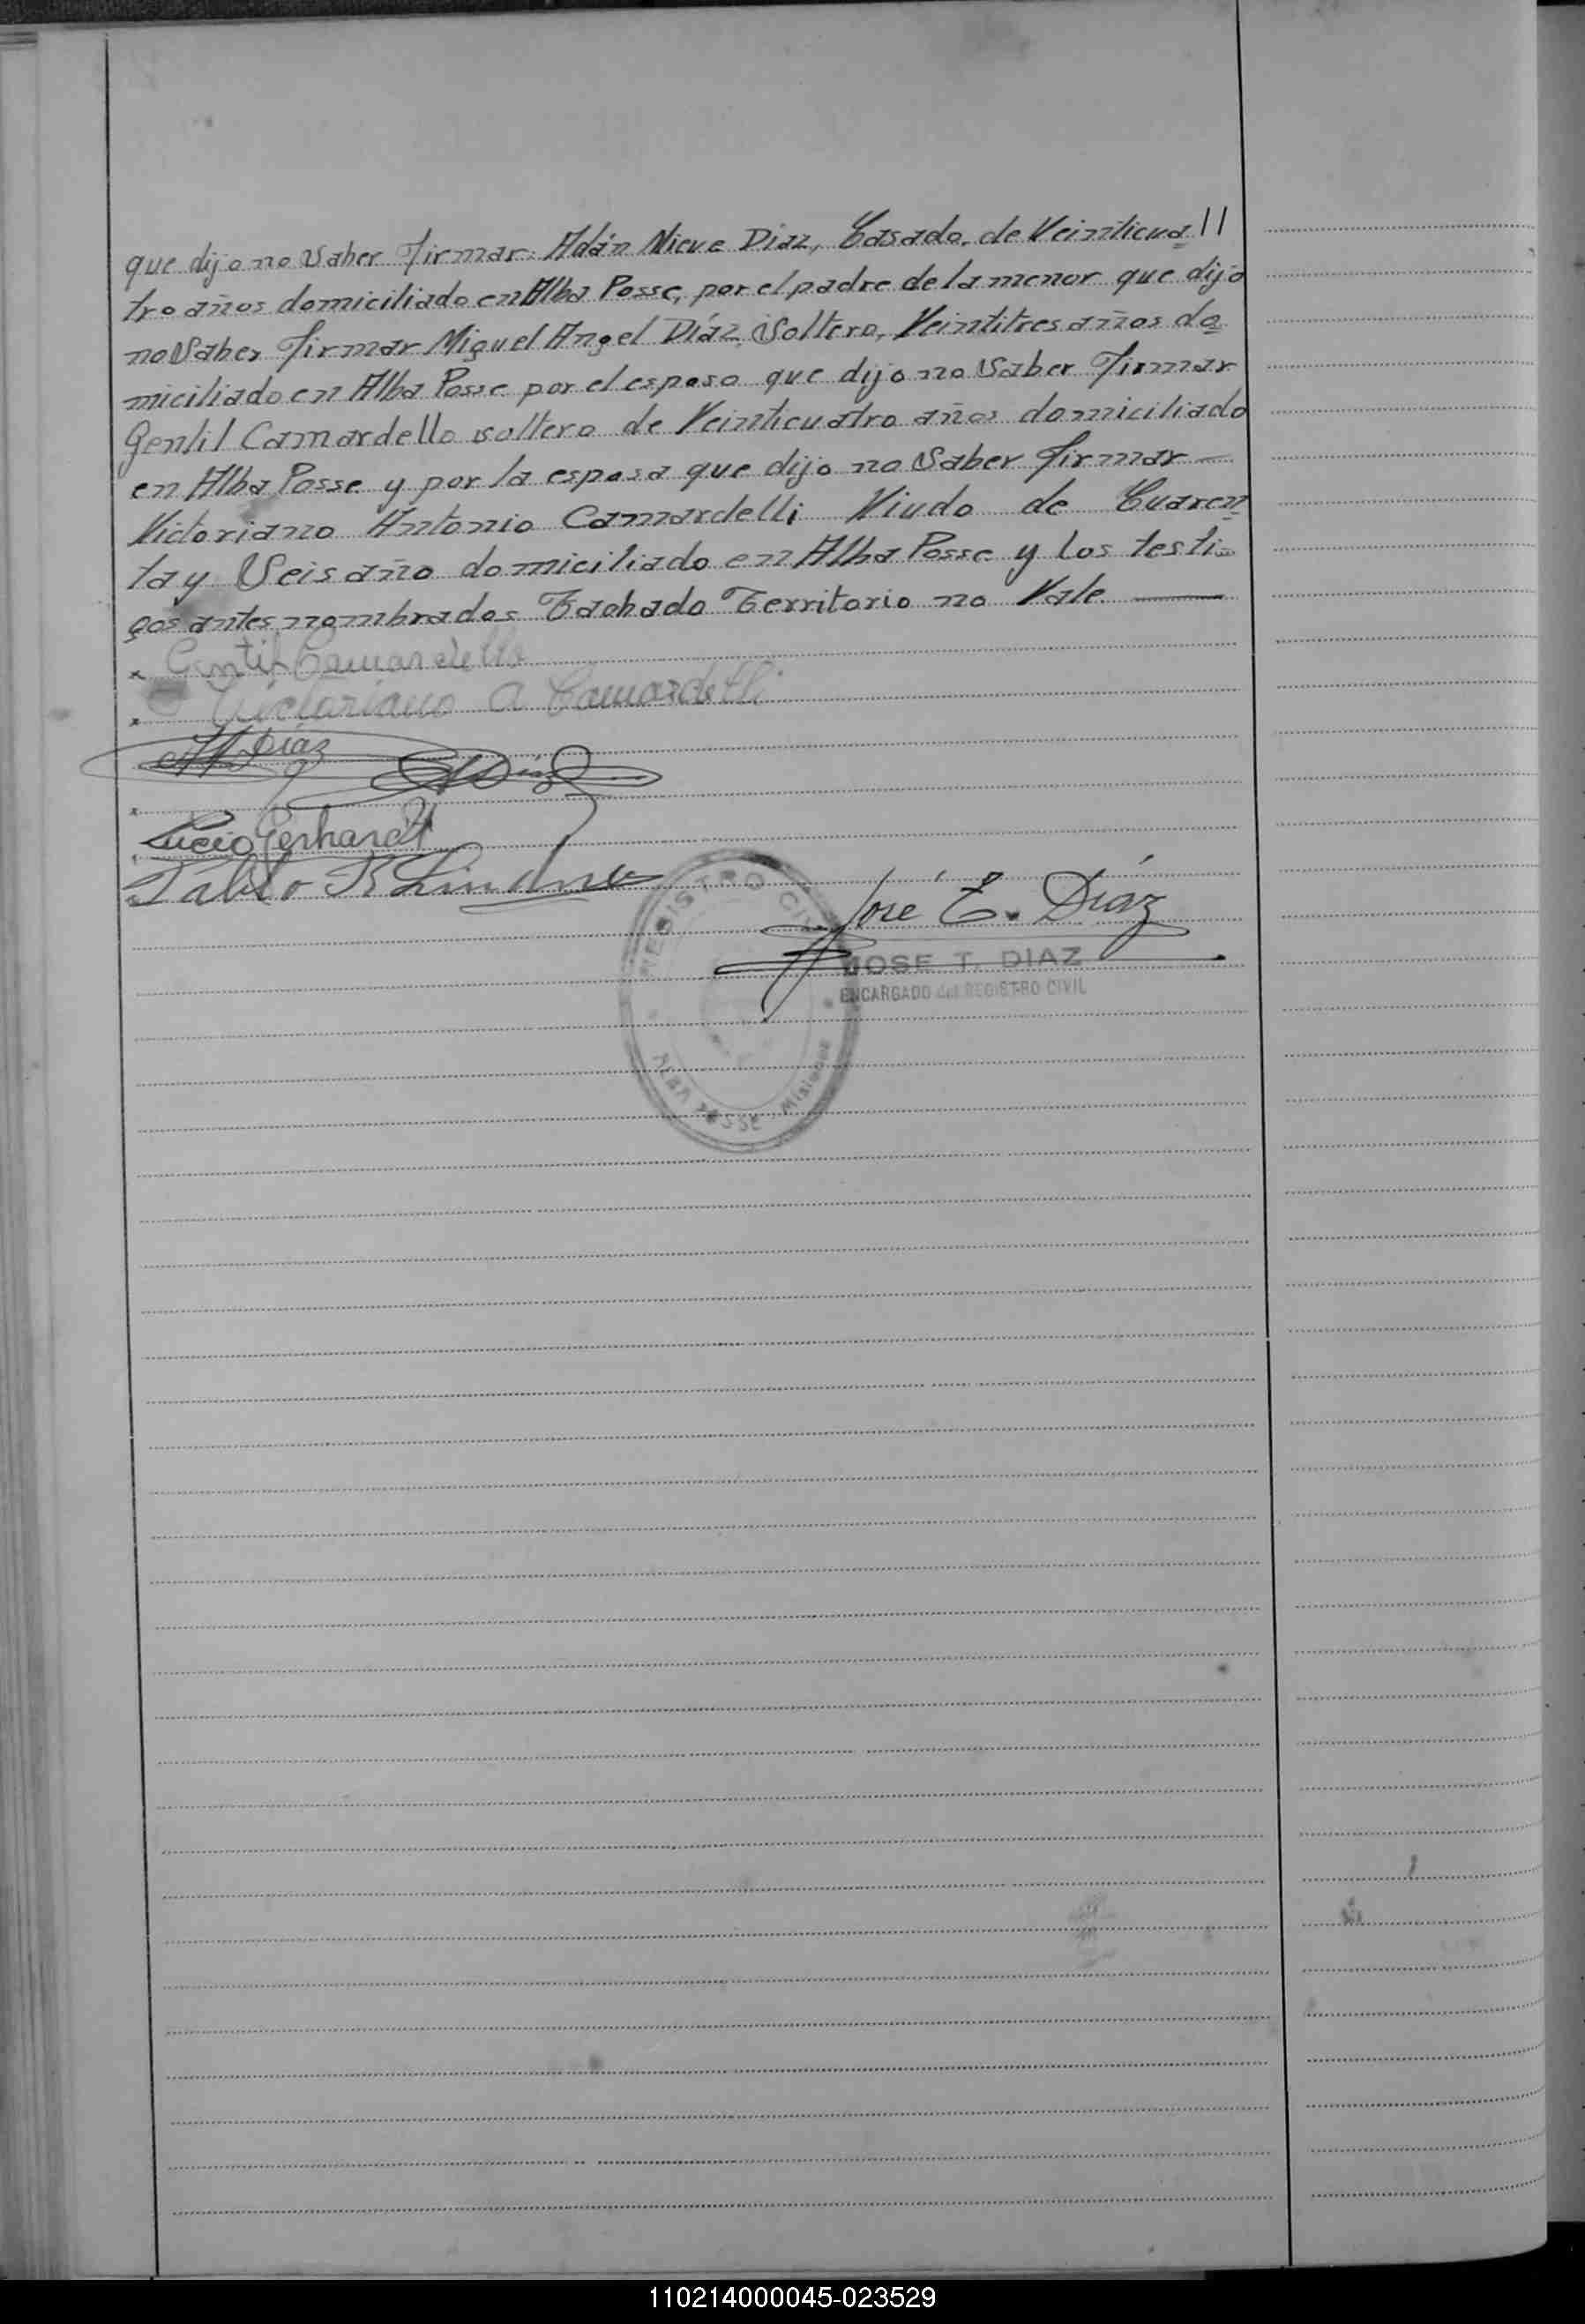 que dijo no Saber Firmar: Adán Nieve Diaz, Casado, de Veinticua//
tro años domiciliado en Alba Posse, por el padre de la menor que dijo
no Saber Firmar Miguel Angel Díaz, Soltero, Veintitres años do
miciliado en Alba Posse por el esposo que dijo no Saber Firmar
Gentil Camardello soltero de Veinticuatro años domiciliado
en Alba Posse y por la esposa que dijo no Saber Firmar —
Victoriano Antonio Camardelli Viudo de Cuaren
ta y Seis año domiciliado en Alba Posse y los testi
gos antes nombrados Tachado Territorio no Vale. —
Gentil Camardello
Victoriano A Camardelli
Díaz
Díaz
Lucio Gerhardt
Pablo R
REGISTRO CIVIL
José T. Díaz
JOSE T. DIAZ
ENCARGADO del REGISTRO CIVIL
ALBA POSSE Misiones
110214000045-023529